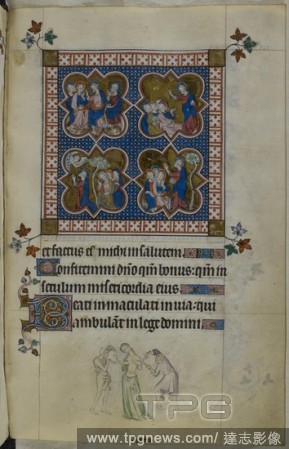 et factus es michi in salutem
Confitemini dño qm̃ bonus: qm̃ in
seculum misericordia eius
Beati inmaculati in uia: qui
ambulãt in lege domini
TPG
www.tpgnews.com/ 達志影像